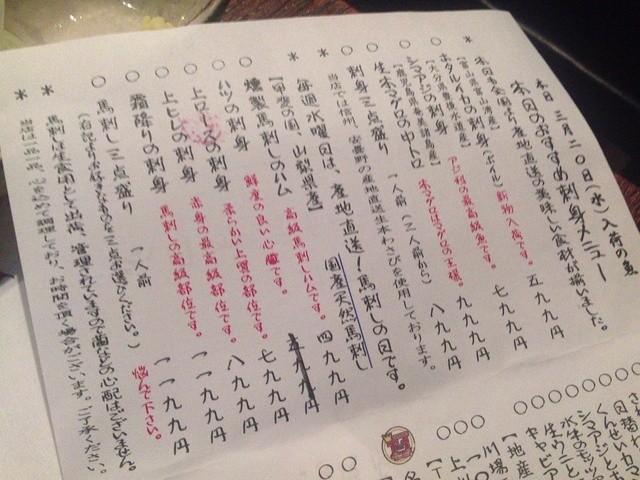 本日 三月二〇日(水)入荷の魚
本日のおすすめ刺身メニュー
＊ 本日も全国より産地直送の美味しい食材が揃いました。
【富山県富山湾産】
○ ホタルイカの刺身(ボイル) 新物入荷です。 五九九円
【大分県豊後水道産】
○ シマアジの刺身 アジ科の最高級魚です。 七九九円
【鹿児島県奄美諸島産】
○ 生本マグロの中トロ 本マグロはマグロの王様。 九九九円
○ 刺身三点盛り 一人前(二人前から) 八九九円
＊ 当店では信州、安曇野の産地直送生本わさびを使用しております。
＊ 毎週水曜日は、産地直送!馬刺しの日です。
【甲斐の国、山梨県産】 国産天然馬刺し
○ 燻製馬刺しのハム 高級馬刺しハムです。 四九九円
○ ハツの刺身 鮮度の良い心臓です。 五九九円
○ 上ロースの刺身 柔らかい上質の部位です。 七九九円
○ 上ヒレの刺身 赤身の最高級部位です。 八九九円
○ 霜降りの刺身 馬刺しの高級部位です。 一一九九円
○ 馬刺し三点盛り 一人前 一一九九円
(右記よりお好きなものを三点お選びください。) 悩んで下さい。
＊ 馬刺しは生食用として出荷、管理されていますので菌などの心配はございません。
＊ 当店は一品一品、心を込めて調理しており、お時間を頂く場合がございます。ご了承ください。
日替
くんせい
シマアジと
水牛のモッツ
生ウニと
キャビア
【地産
川場
上